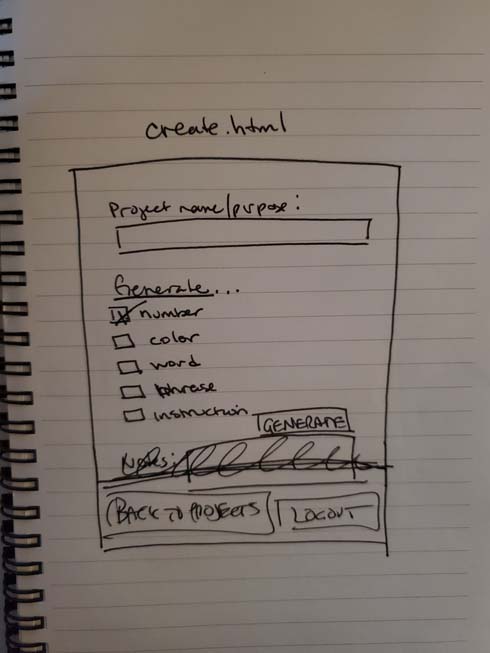 create.html
Project name/purpose:
Generate...
number
color
word
phrase
instruction
GENERATE
Notes:
BACK TO PROJECTS
LOGOUT